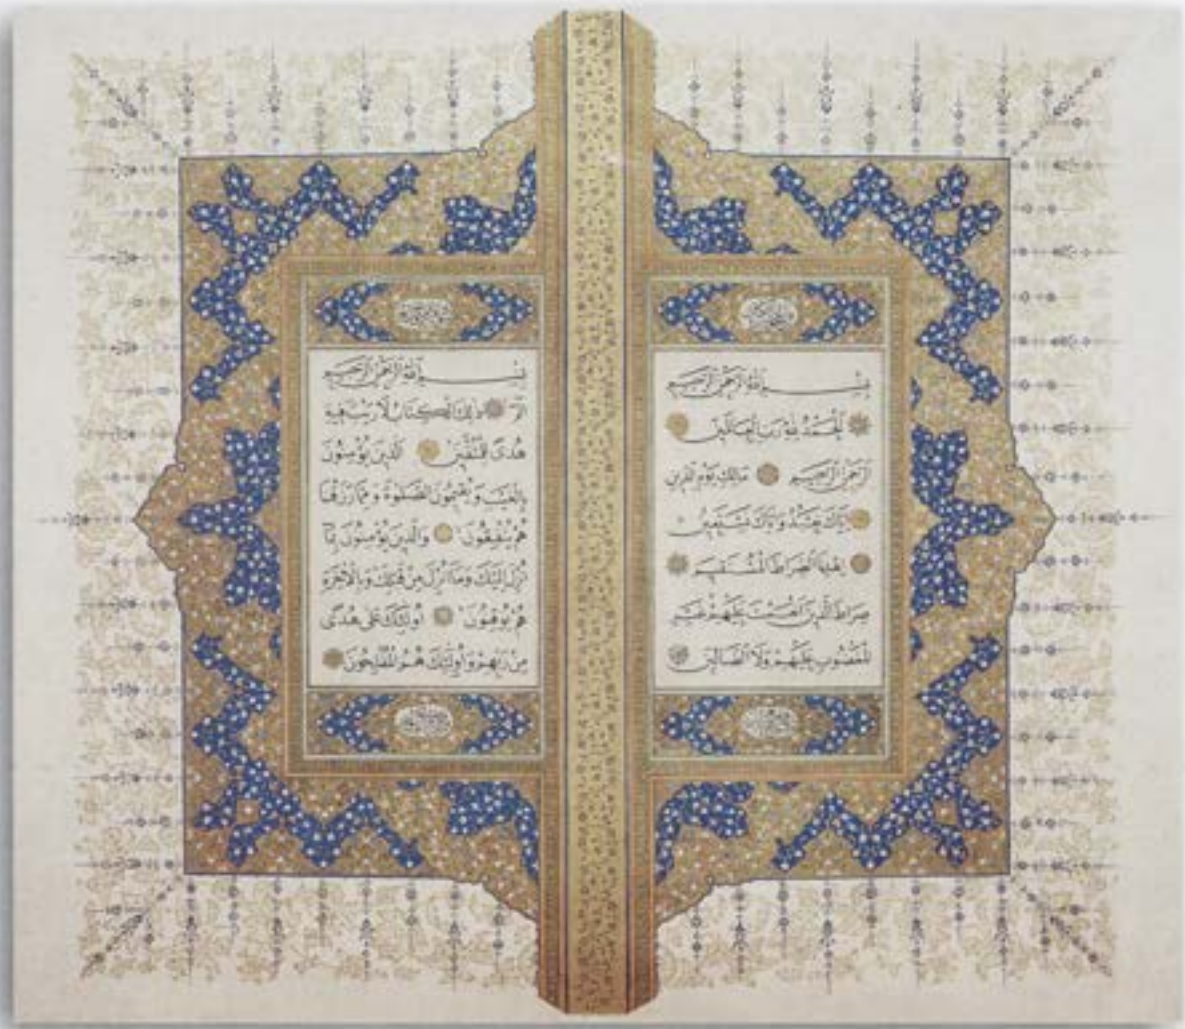 بِسْمِ اللهِ الرَّحْمٰنِ الرَّحِيمِ
اَلْحَمْدُ لِلّٰهِ رَبِّ الْعَالَمِينَ
اَلرَّحْمٰنِ الرَّحِيمِ مَالِكِ يَوْمِ الدِّينِ
اِيَّاكَ نَعْبُدُ وَاِيَّاكَ نَسْتَعِينُ
اِهْدِنَا الصِّرَاطَ الْمُسْتَقِيمَ
صِرَاطَ الَّذِينَ اَنْعَمْتَ عَلَيْهِمْ غَيْرِ
الْمَغْضُوبِ عَلَيْهِمْ وَلَا الضَّالِّينَ
بِسْمِ اللهِ الرَّحْمٰنِ الرَّحِيمِ
الٓمٓ ذٰلِكَ الْكِتَابُ لَا رَيْبَ فِيهِ
هُدًى لِلْمُتَّقِينَ اَلَّذِينَ يُؤْمِنُونَ
بِالْغَيْبِ وَيُقِيمُونَ الصَّلٰوةَ وَمِمَّا رَزَقْنَا
هُمْ يُنْفِقُونَ وَالَّذِينَ يُؤْمِنُونَ بِمَا
اُنْزِلَ اِلَيْكَ وَمَا اُنْزِلَ مِنْ قَبْلِكَ وَبِالْاٰخِرَةِ
هُمْ يُوقِنُونَ اُولٰئِكَ عَلٰى هُدًى
مِنْ رَبِّهِمْ وَاُولٰئِكَ هُمُ الْمُفْلِحُونَ